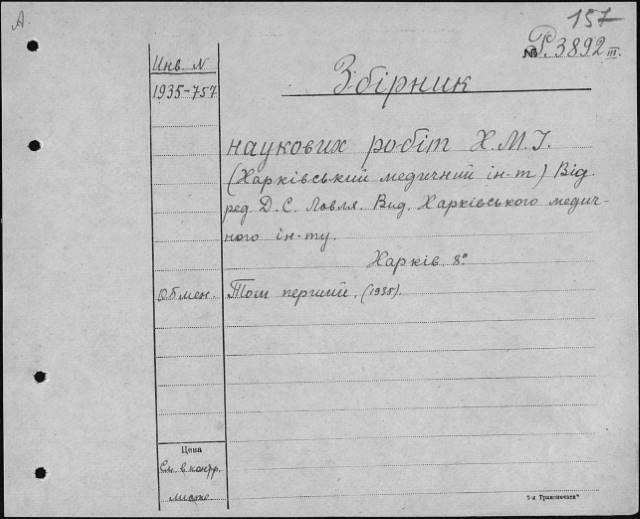 А.
157
№ Р. 3892 III.
Инв. N
Збірник
1935-757
наукових робіт Х.М.І.
(Харківський медичний ін-т) Від.
ред. Д.С. Ловля. Вид. Харківського медич-
ного ін-ту.
Харків. 8°
Обмен. Том перший. (1935).
Цена
См. в контр.
листе